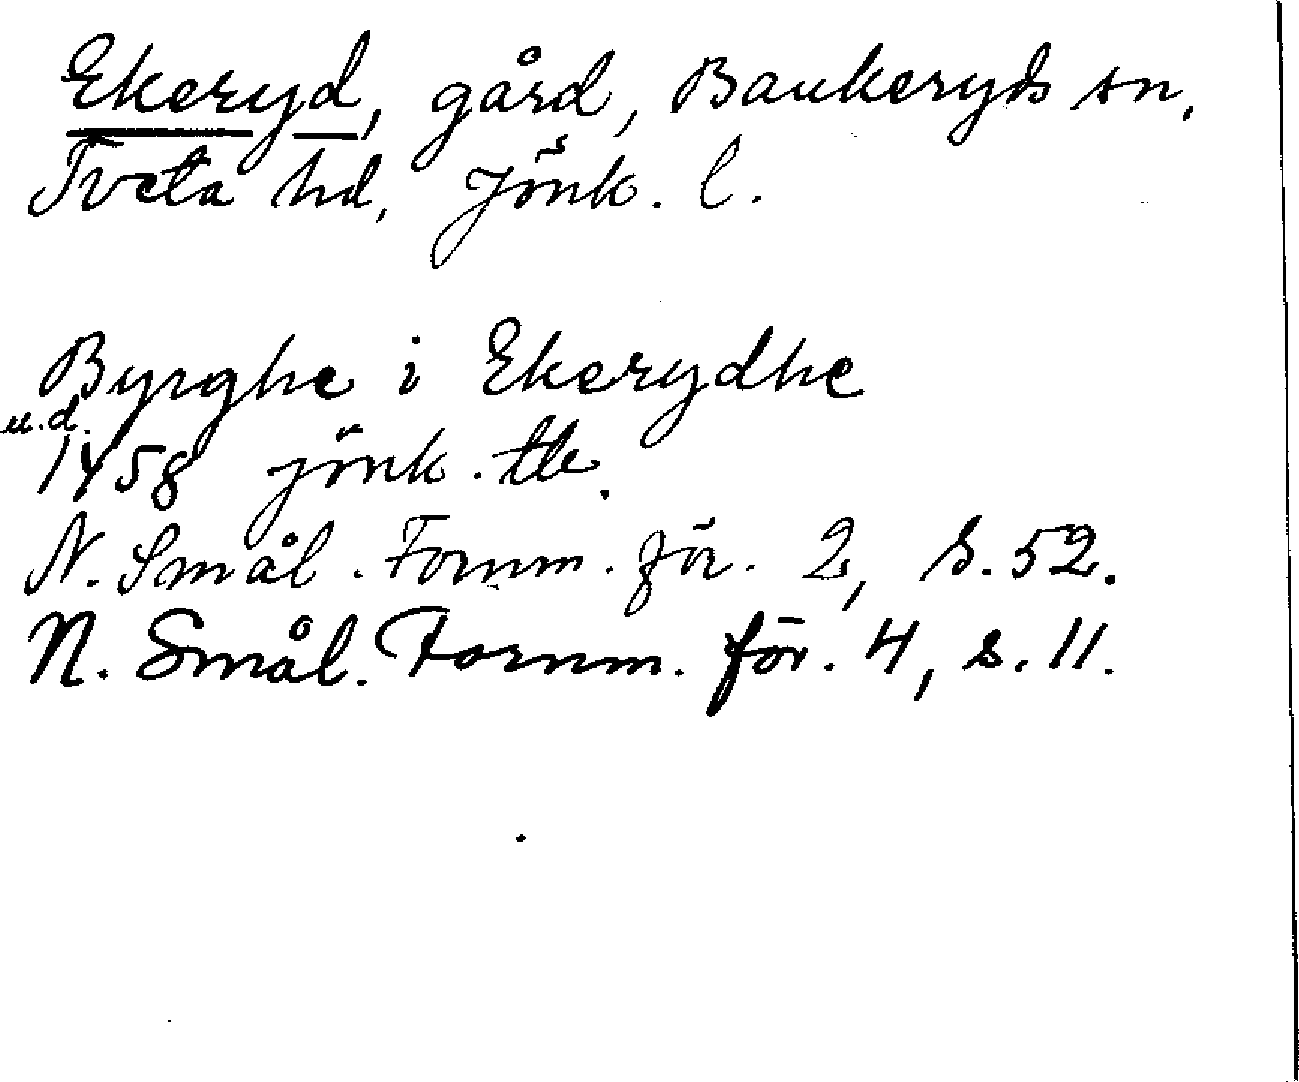 Ekeryd, gård, Bankeryds sn,
Tveta hd, Jönk. l.
Byrghe i Ekerydhe
u.d.
1458 jönk. tb.
N. Smål. Fornm. för. 2, s. 52.
N. Smål. Fornm. för. 4, s. 11.